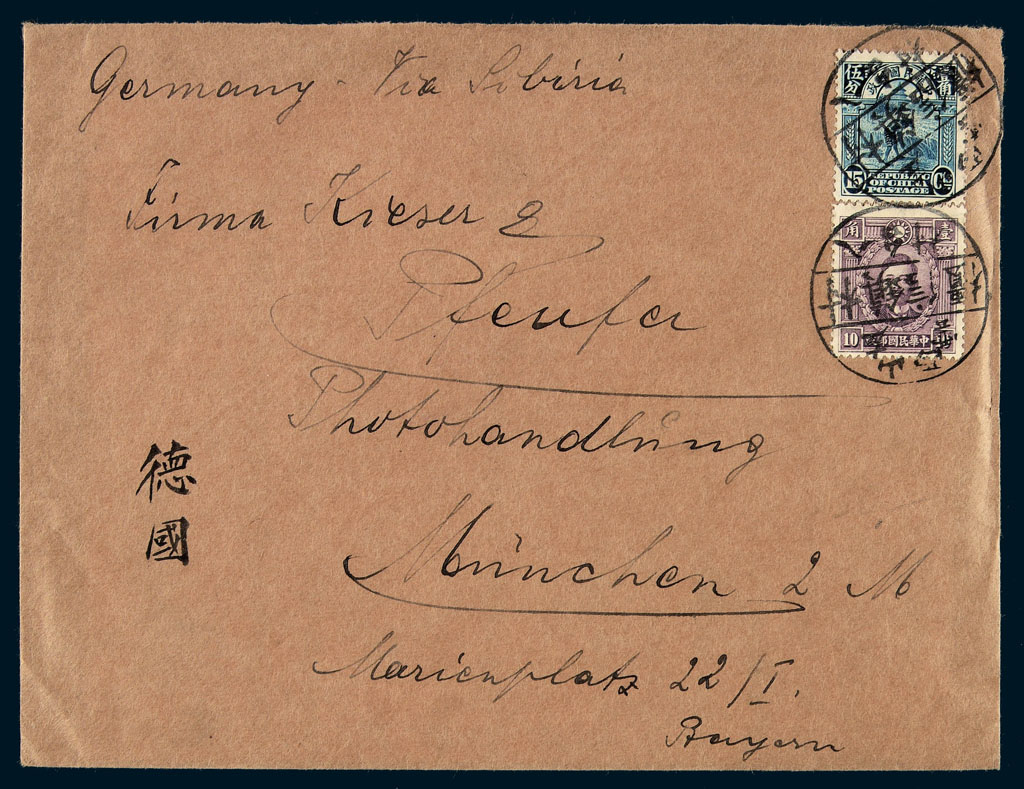 Germany - Via Sibiria
Firma Kieser &
Pfeufer
Photohandlung
München 2 M
Marienplatz 22/I.
Bayern
德國
伍分
15 Cts
REPUBLIC
OF CHINA
POSTAGE
角 壹
10
中華民國郵